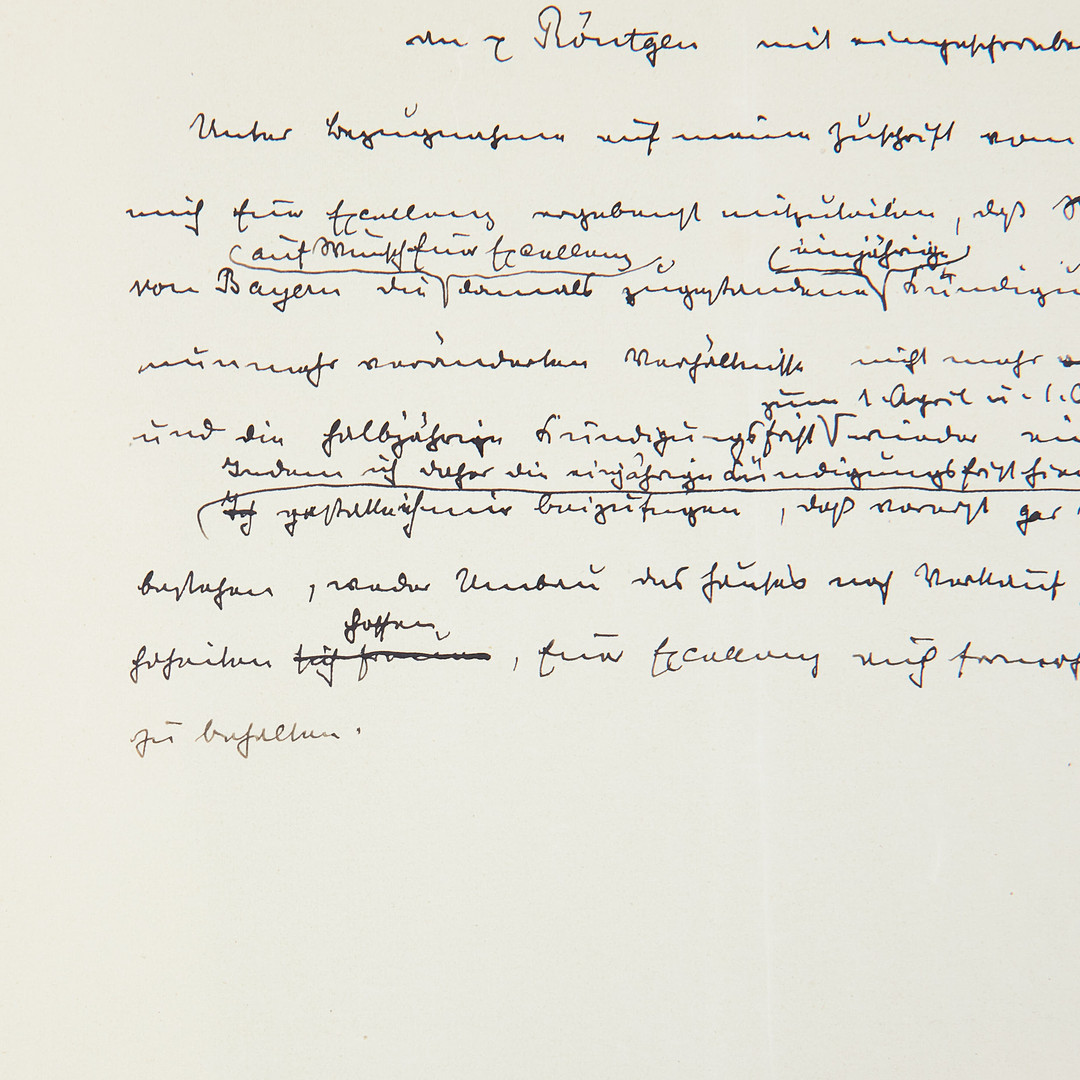 an Röntgen mit eingeschriebe
Unter Bezugnahme auf meine Zuschrift vom
mich Eure Excellenz ergebenst mitzuteilen, daß
auf Wunsch Eure Excellenz einjährige
von Bayern die damals zugestandene Kündigu
nunmehr veränderten Verhältnisse nicht mehr
zum 1. April u. 1. O
und die halbjährige Kündigungsfrist wieder ein
Indem ich daher die einjährige Kündigungsfrist hier
Ich gestatte ich mir beizufügen, daß vorerst gar
bestehen, weder Umbau des Hauses noch Verkauf
hoffen
hoheiten sich freuen, Eure Excellenz auch fernerh
zu behalten.